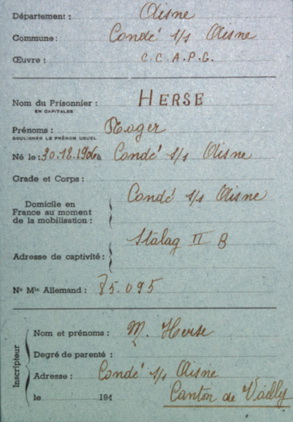 Département : Aisne
Commune : Condé s/s Aisne
Œuvre : C.C.A.P.G.
Nom du Prisonnier : HERSE
EN CAPITALES
Prénoms : Roger
SOULIGNER LE PRÉNOM USUEL
Né le : 30.12.1906 à Condé s/s Aisne
Grade et Corps :
Condé s/s Aisne
Domicile en
France au moment
de la mobilisation :
Stalag II B
Adresse de captivité :
No Mle Allemand : 75.095
Inscripteur
Nom et prénoms : M. Herse
Degré de parenté :
Adresse : Condé s/s Aisne
le 194 Canton de Vailly